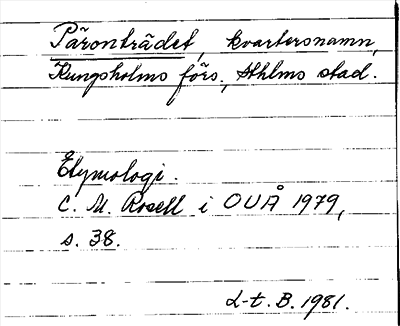 Päronträdet, kvartersnamn,
Kungsholms förs., Sthlms stad.
Etymologi.
C. M. Rosell i OUÅ 1979,
s. 38.
L-t. B. 1981.